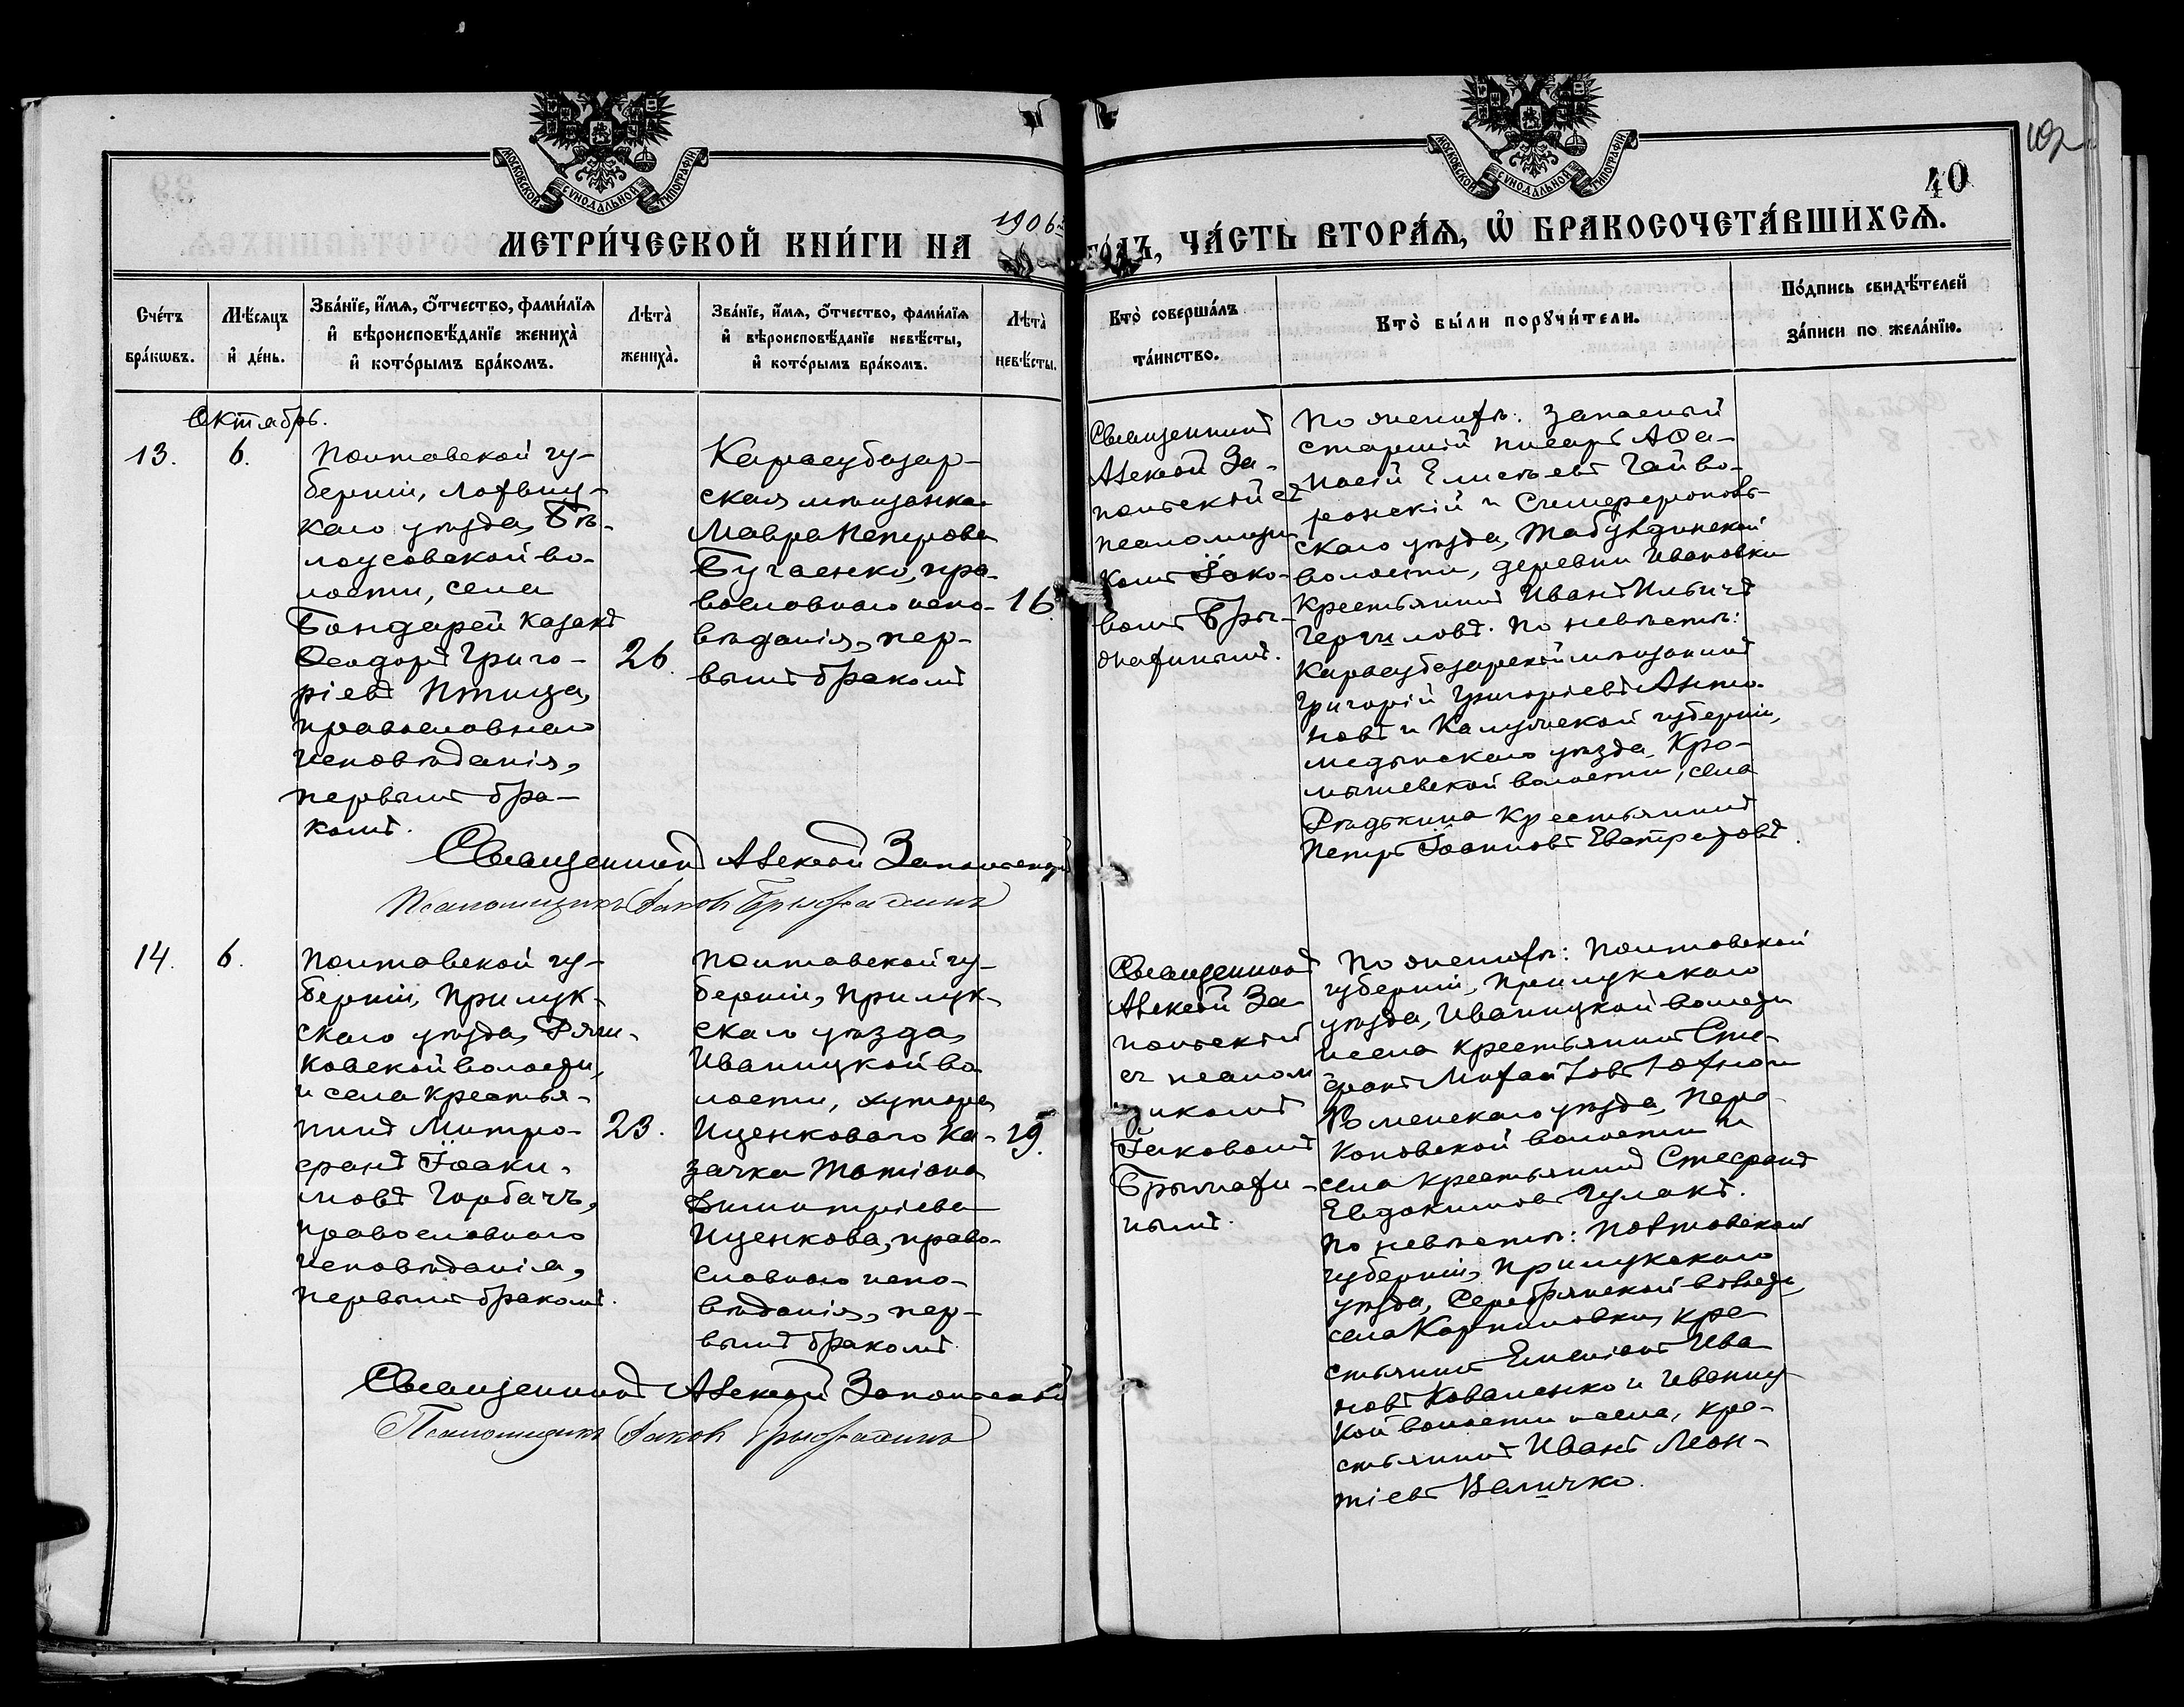 МОСКОВСКОЙ СѴНОДАЛЬНОЙ ТИПОГРАФІИ
МОСКОВСКОЙ СѴНОДАЛЬНОЙ ТИПОГРАФІИ
40
МЕТРИ́ЧЕСКОЙ КНИ́ГИ НА 1906 ГО́ДЪ, ЧА́СТЬ ВТОРА́Я, Ѡ҆ БРАКОСОЧЕТА́ВШИХСЯ.
Сче́тъ
бра́кѡвъ.
Мѣ́сяцъ
и҆ де́нь.
Зва́нїе, и҆́мя, ѻ҆́тчество, фами́лїя
и҆ вѣроисповѣ́данїе жениха̀
и҆ кото́рымъ бра́комъ.
Лѣта̀
жениха̀.
Зва́нїе, и҆́мя, ѻ҆́тчество, фами́лїя
и҆ вѣроисповѣ́данїе невѣ́сты,
и҆ кото́рымъ бра́комъ.
Лѣта̀
невѣ́сты.
Кто̀ соверша́лъ
та́инство.
Кто̀ бы́ли порꙋчи́тели.
По́дпись свидѣ́телей
за́писи по жела́нїю.
Октябрь.
13.
6.
Полтавской гу-
берніи, Лохвиц-
каго уѣзда, Бѣ-
лоусовской во-
лости, села
Бондарей казакъ
Ѳеодоръ Григо-
ріевъ Птица,
православнаго
исповѣданія,
первымъ бра-
комъ.
26.
Карасубазар-
ская мѣщанка
Мавра Петрова
Бугаенко, пра-
вославнаго испо-
вѣданія, пер-
вымъ бракомъ
16.
Священникъ
Алексій За-
польскій съ
псаломщи
комъ Іако-
вомъ Бры-
жахинымъ.
По женихѣ: запасный
старшій писарь Аѳа-
насій Елисѣевъ Гайво-
ронскій и Симферополь-
скаго уѣзда, Табулдинской
волости, деревни Ивановки
крестьянинъ Иванъ Ильичъ
По невѣстѣ:
Карасубазарскій мѣщанинъ
Григорій Григоріевъ Анто-
новъ и Калужской губерніи,
Медынскаго уѣзда, Кро-
мышевской волости, села
Рѣдькина крестьянинъ
Петръ Іоанновъ Евстратовъ.
Священникъ Алексій Запольскій
Псаломщикъ Іаковъ Брыжахинъ
14.
6.
Полтавской гу-
берніи, Прилук-
скаго уѣзда, Ряш-
ковской волости,
и села крестья-
нинъ Митро-
фанъ Іоаки-
мовъ Горбачъ,
православнаго
исповѣданія,
первымъ бракомъ.
23.
Полтавской гу-
берніи, Прилук-
скаго уѣзда
Иваницкой во
лости, хутора
Ищенковаго ка-
зачка Татіана
Димитріева
Ищенкова, право-
славнаго испо-
вѣданія, пер-
вымъ бракомъ.
19.
Священникъ
Алексій За
польскій
съ псалом
щикомъ
Іаковомъ
Брыжахи-
нымъ.
По женихѣ: Полтавской
губерніи, Прилукскаго
уѣзда, Иваницкой волости
и села крестьянинъ Сте-
фанъ Михайловъ Юхно и
Роменскаго уѣзда, Пере-
коповской волости и
села крестьянинъ Стефанъ
Евдокимовъ Гулакъ.
По невѣстѣ: Полтавской
губерніи, Прилукскаго
уѣзда, Сребрянской волости,
села Карпиловки, кре
стьянинъ Емеліанъ Ива
новъ Коваленко и Иваниц
кой волости и села, кре-
стьянинъ Иванъ Леон-
тіевъ Величко.
Священникъ Алексій Запольскій
Псаломщикъ Іаковъ Брыжахинъ